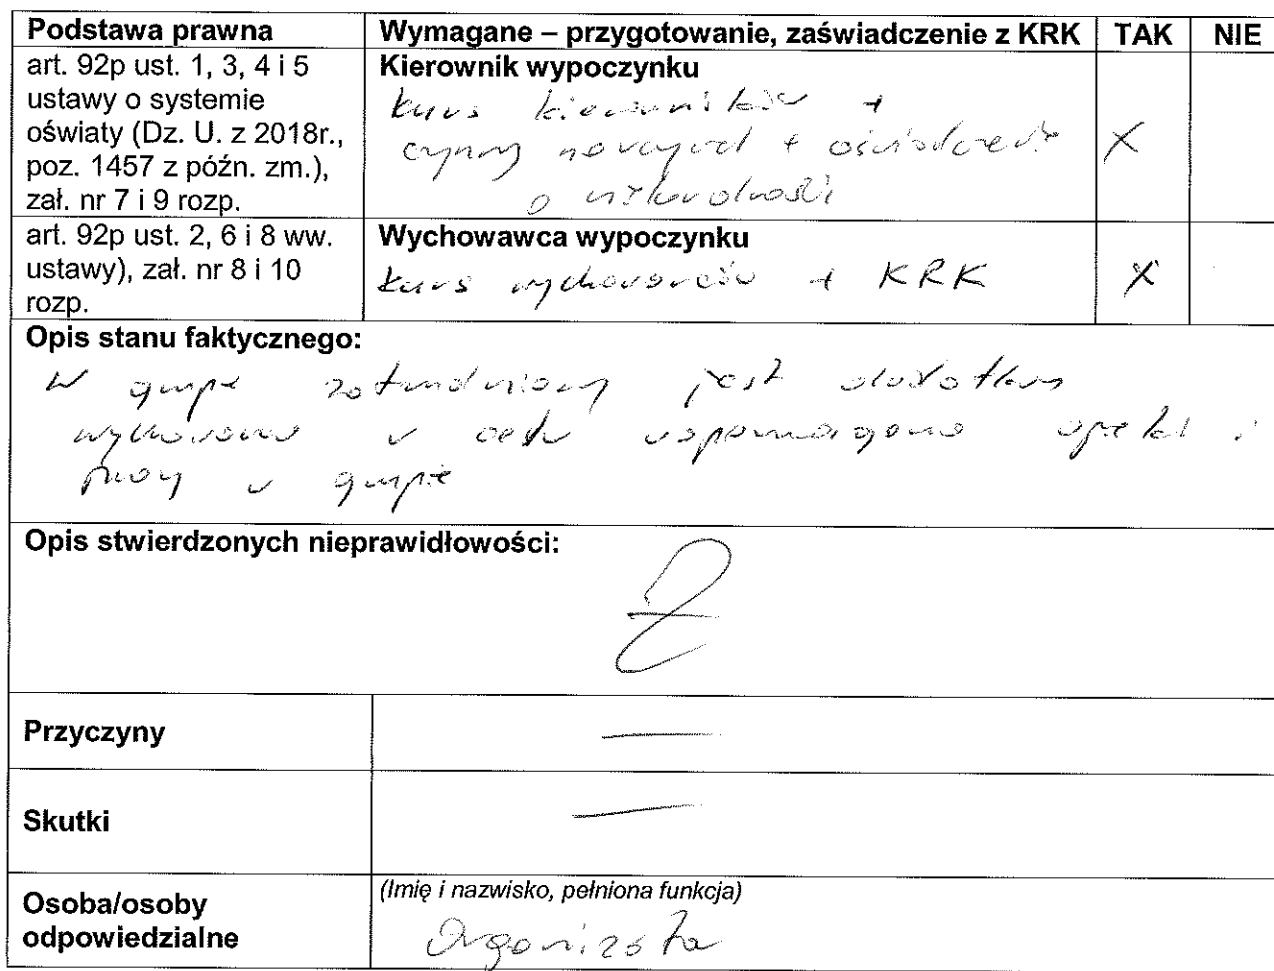 Podstawa prawna
Wymagane – przygotowanie, zaświadczenie z KRK
TAK
NIE
art. 92p ust. 1, 3, 4 i 5
ustawy o systemie
oświaty (Dz. U. z 2018r.,
poz. 1457 z późn. zm.),
zał. nr 7 i 9 rozp.
Kierownik wypoczynku
kurs kierowników +
czynny nauczyciel + oświadczenie
o niekaralności
X
art. 92p ust. 2, 6 i 8 ww.
ustawy), zał. nr 8 i 10
rozp.
Wychowawca wypoczynku
kurs wychowawców + KRK
X
Opis stanu faktycznego:
W grupie zatrudniony jest dodatkowy
wychowawca w celu wspomagania opieki i
pracy w grupie
Opis stwierdzonych nieprawidłowości:
Przyczyny
—
Skutki
—
Osoba/osoby
odpowiedzialne
(Imię i nazwisko, pełniona funkcja)
Organizator